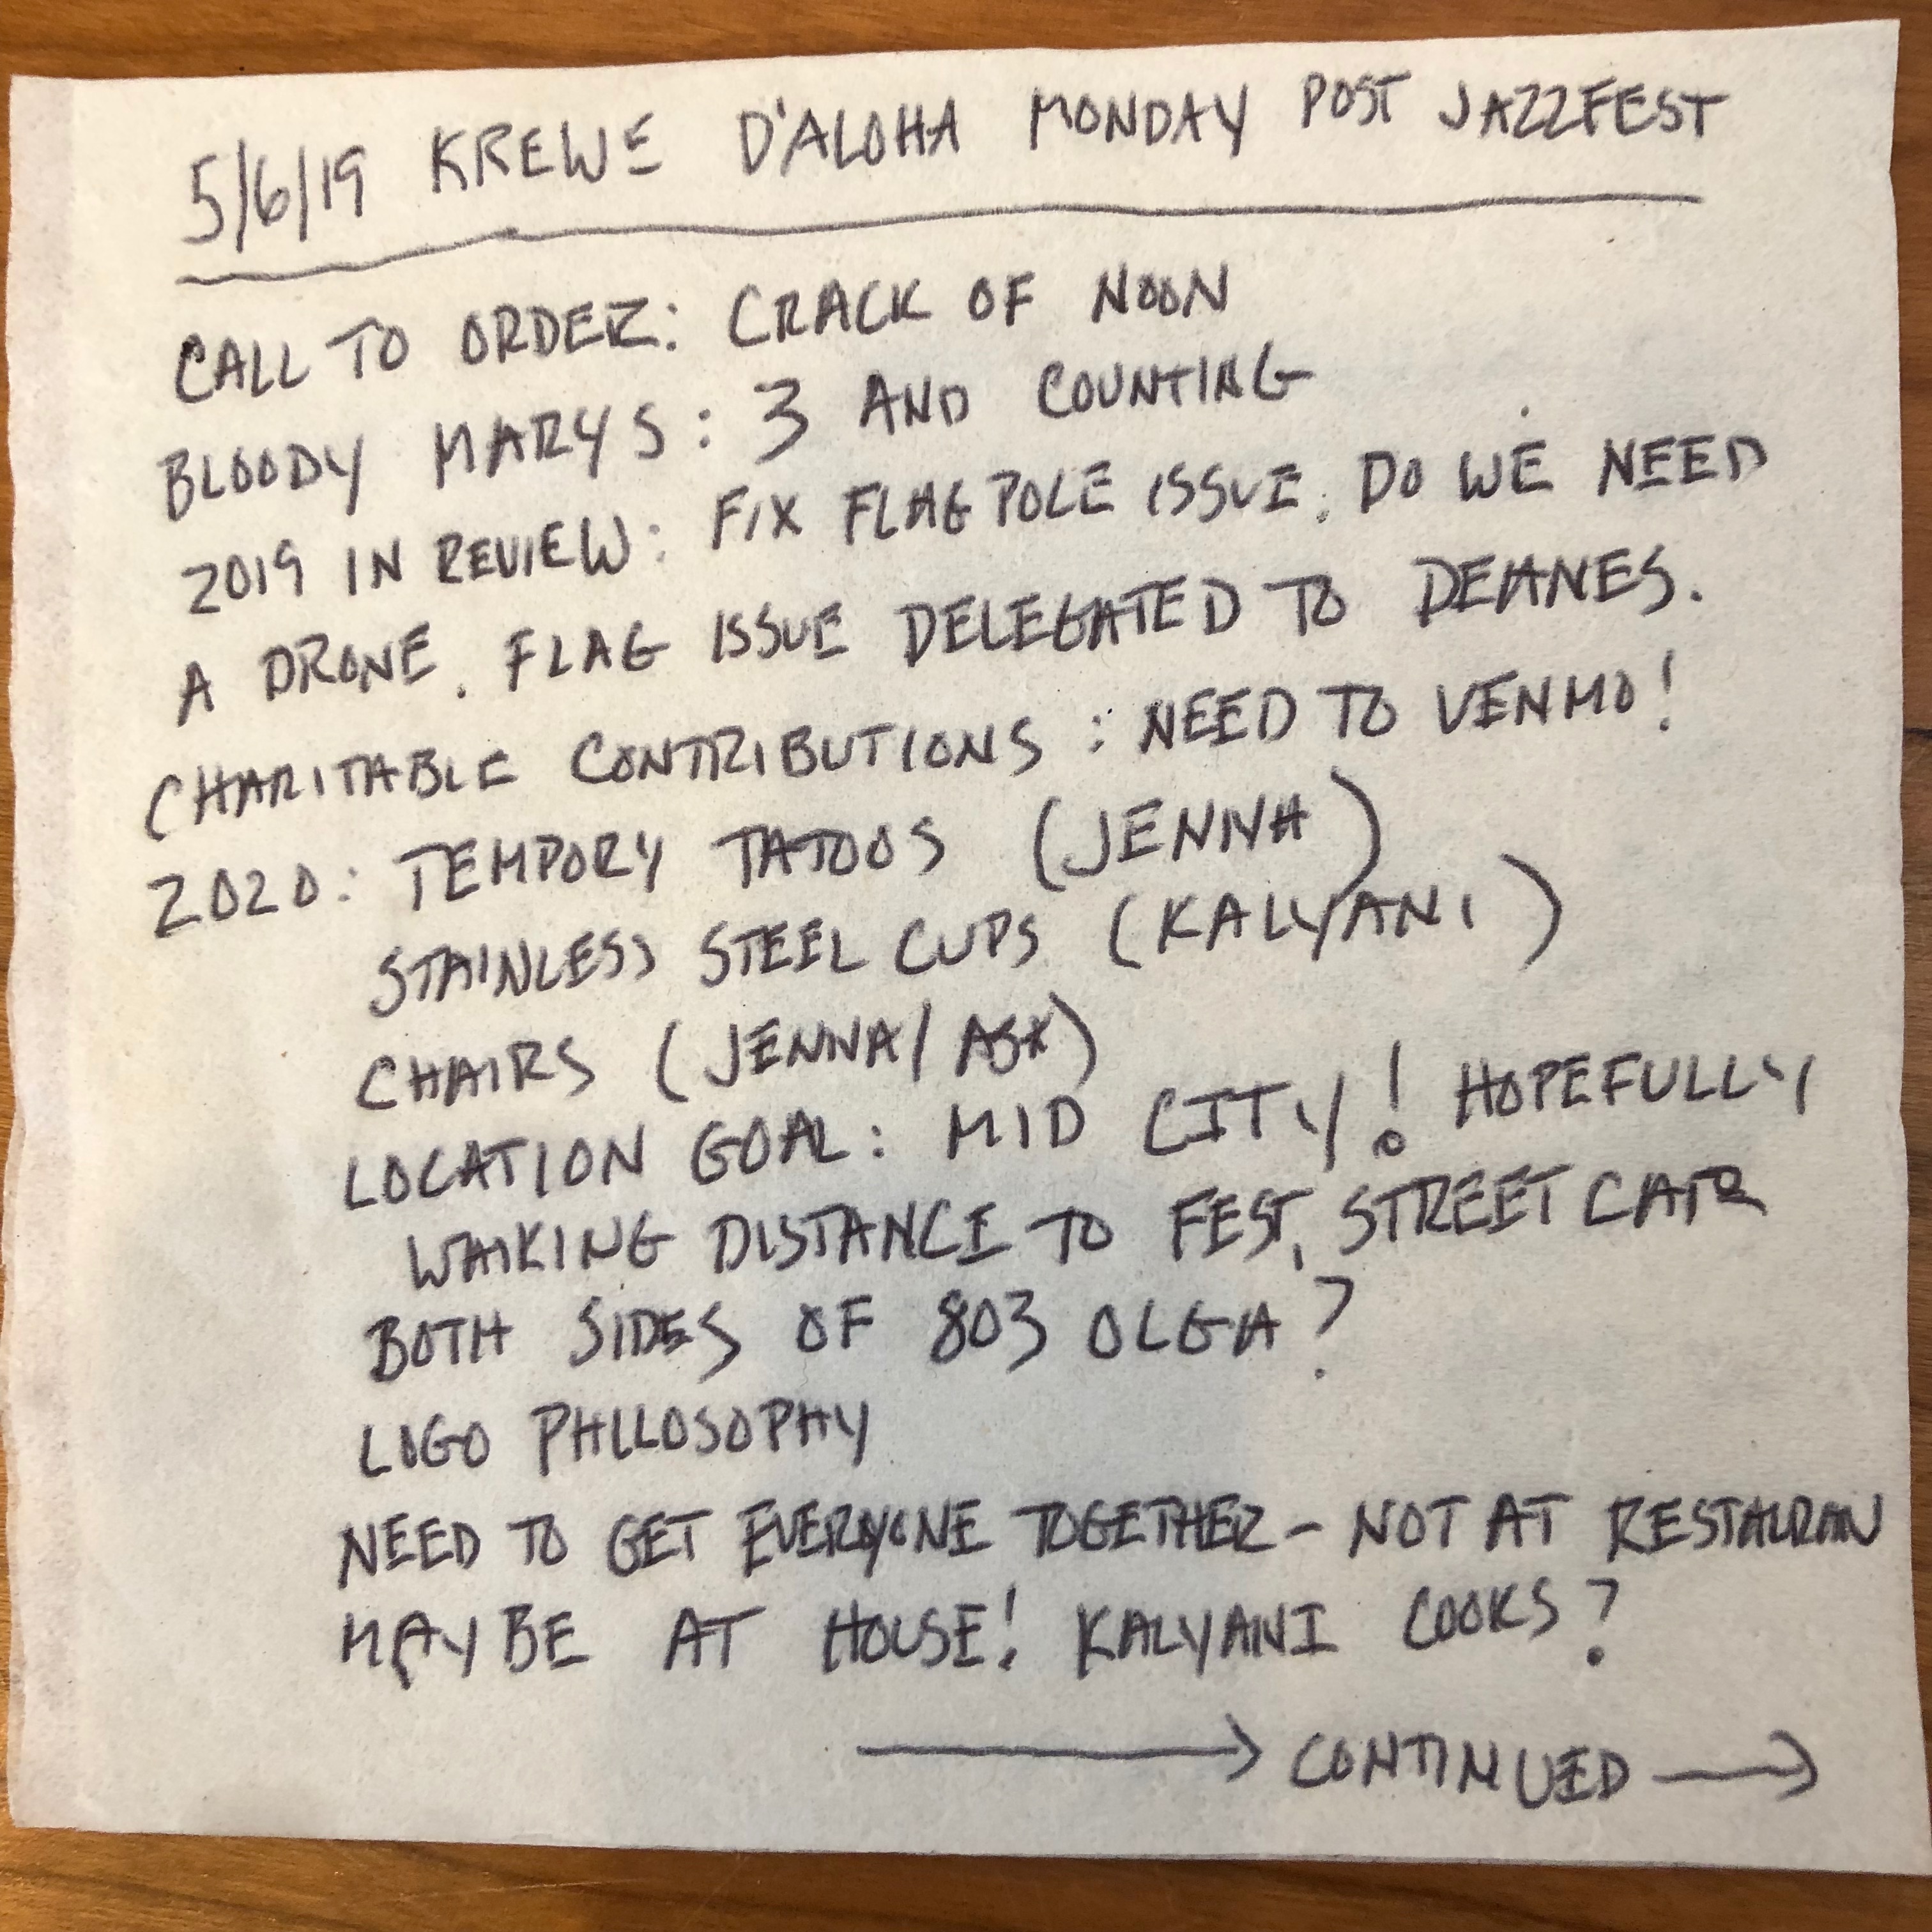 5/6/19 KREWE D'ALOHA MONDAY POST JAZZFEST
CALL TO ORDER: CRACK OF NOON
BLOODY MARYS: 3 AND COUNTING
2019 IN REVIEW: FIX FLAG POLE ISSUE. DO WE NEED
A DRONE. FLAG ISSUE DELEGATED TO DEANES.
CHARITABLE CONTRIBUTIONS: NEED TO VENMO!
2020: TEMPORY TATOOS (JENNA)
STAINLESS STEEL CUPS (KALYANI)
CHAIRS (JENNA/
LOCATION GOAL: MID CITY! HOPEFULLY
WALKING DISTANCE TO FEST, STREET CAR
BOTH SIDES OF 803 OLGA?
LOGO PHILOSOPHY
NEED TO GET EVERYONE TOGETHER - NOT AT RESTAURAN
MAYBE AT HOUSE! KALYANI COOKS?
→ CONTINUED →